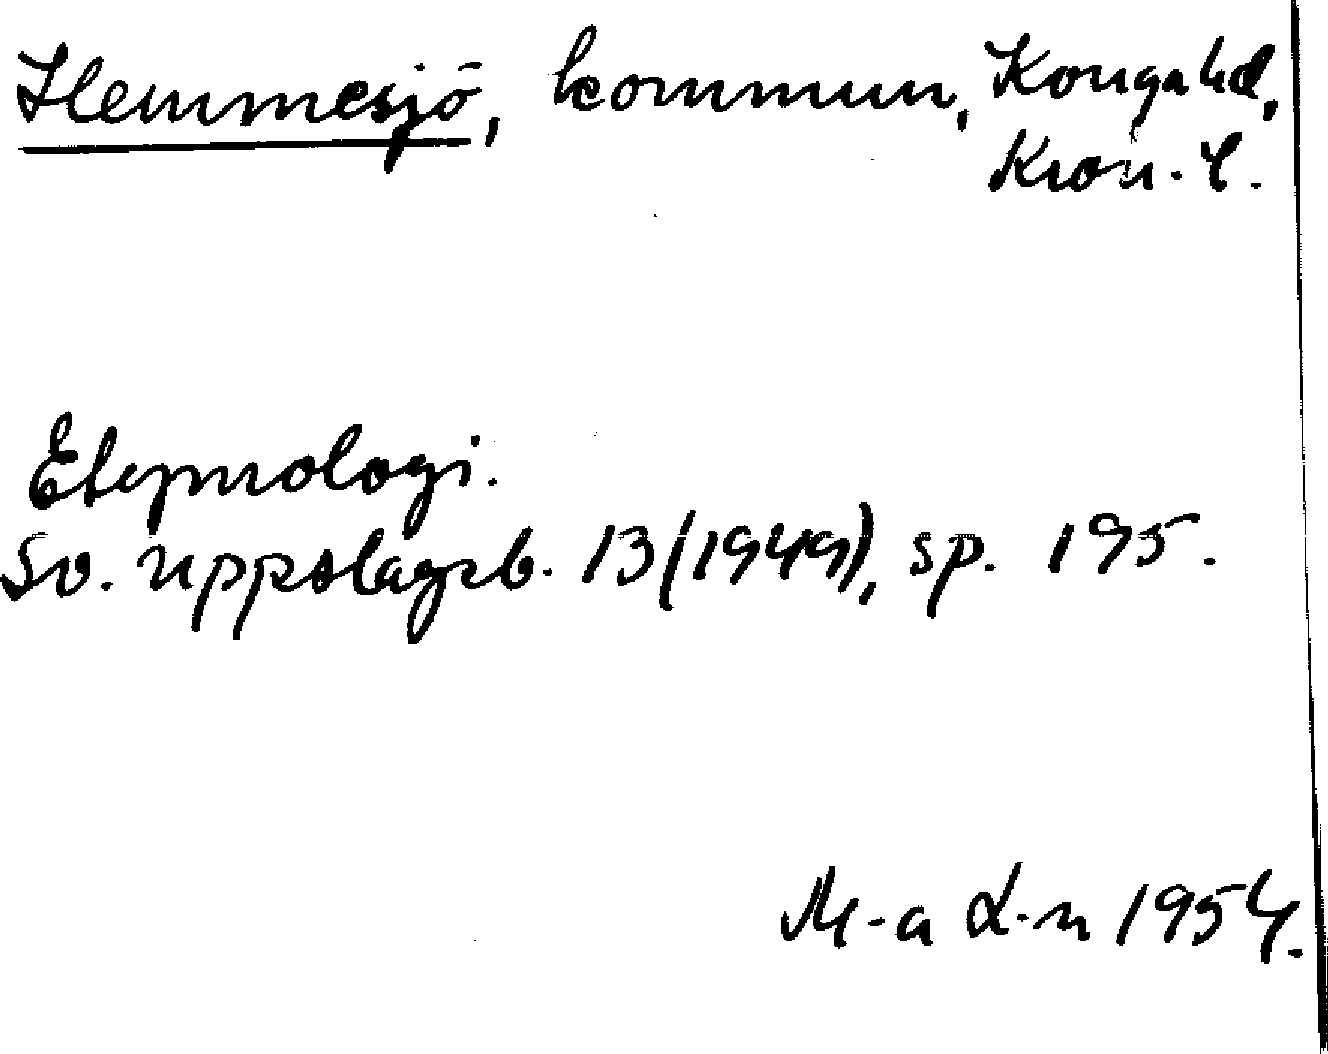 Hemmesjö, kommun, Konga hd,
Kron. l.
Etymologi.
Sv. uppslagsb. 13 (1949), sp. 195.
M-a L-n 1954.